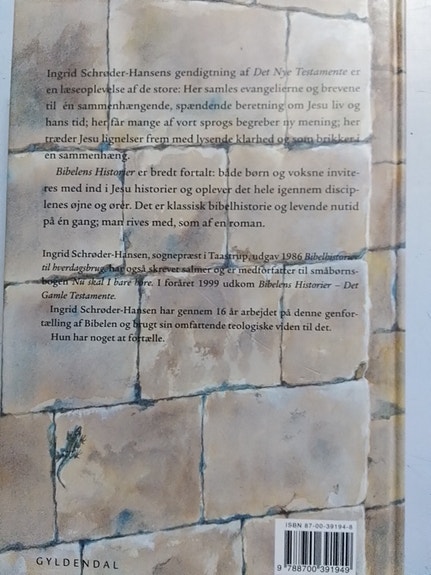 Ingrid Schrøder-Hansens gendigtning af Det Nye Testamente er
en læseoplevelse af de store: Her samles evangelierne og brevene
til én sammenhængende, spændende beretning om Jesu liv og
hans tid; her får mange af vort sprogs begreber ny mening; her
træder Jesu lignelser frem med lysende klarhed og som brikker i
en sammenhæng.
Bibelens Historier er bredt fortalt: både børn og voksne invite-
res med ind i Jesu historier og oplever det hele igennem discip-
lenes øjne og ører. Det er klassisk bibelhistorie og levende nutid
på én gang; man rives med, som af en roman.
Ingrid Schrøder-Hansen, sognepræst i Taastrup, udgav 1986 Bibelhistorier
til hverdagsbrug, har også skrevet salmer og er medforfatter til småbørns-
bogen Nu skal I bare høre. I foråret 1999 udkom Bibelens Historier – Det
Gamle Testamente.
Ingrid Schrøder-Hansen har gennem 16 år arbejdet på denne genfor-
tælling af Bibelen og brugt sin omfattende teologiske viden til det.
Hun har noget at fortælle.
ISBN 87-00-39194-8
9 788700 391949
GYLDENDAL